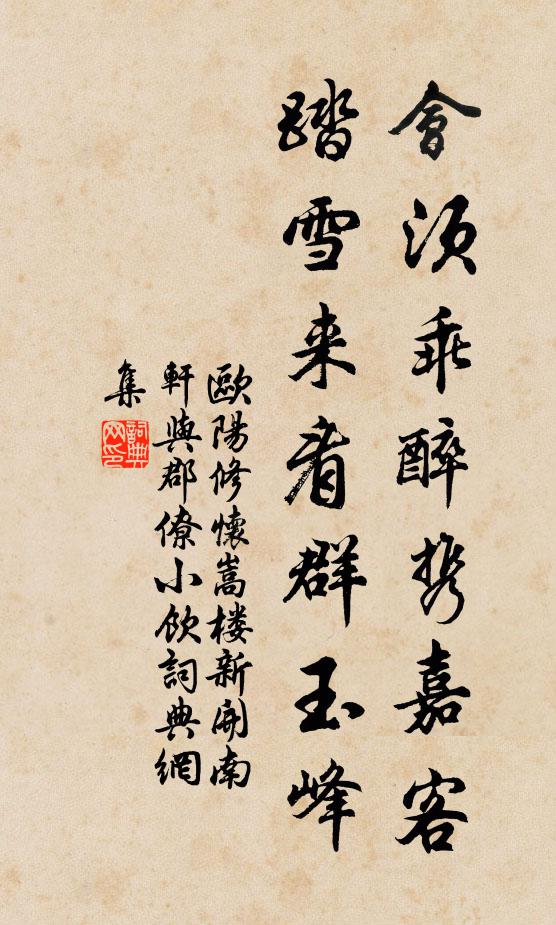 會須乘醉携嘉客
踏雪来看群玉峰
歐陽修懷嵩楼新開南
軒與郡僚小飲詞典網
集
詞典
网印